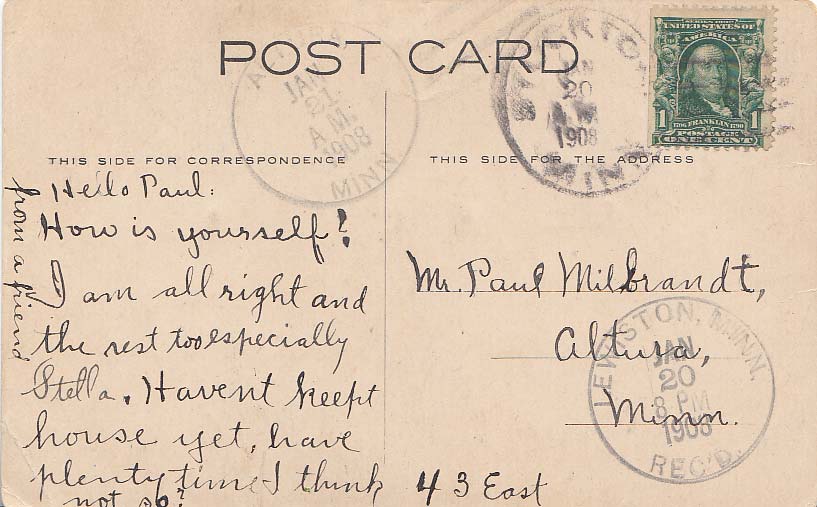 POST CARD
THIS SIDE FOR CORRESPONDENCE
Hello Paul:
How is yourself?
I am all right and
the rest too especially
Stella. Havent keept
house yet, have
plenty time I think
not so?
from a friend
JAN
21
A.M.
1908
MINN
JAN
20
1908
MINN
SERIES 1902
UNITED STATES OF
AMERICA
1706 FRANKLIN 1790
1 POSTAGE 1
ONE CENT
THIS SIDE FOR THE ADDRESS
Mr. Paul Milbrandt,
Altura,
Minn.
43 East
LEWISTON, MINN.
JAN
20
8 PM
1908
REC'D.